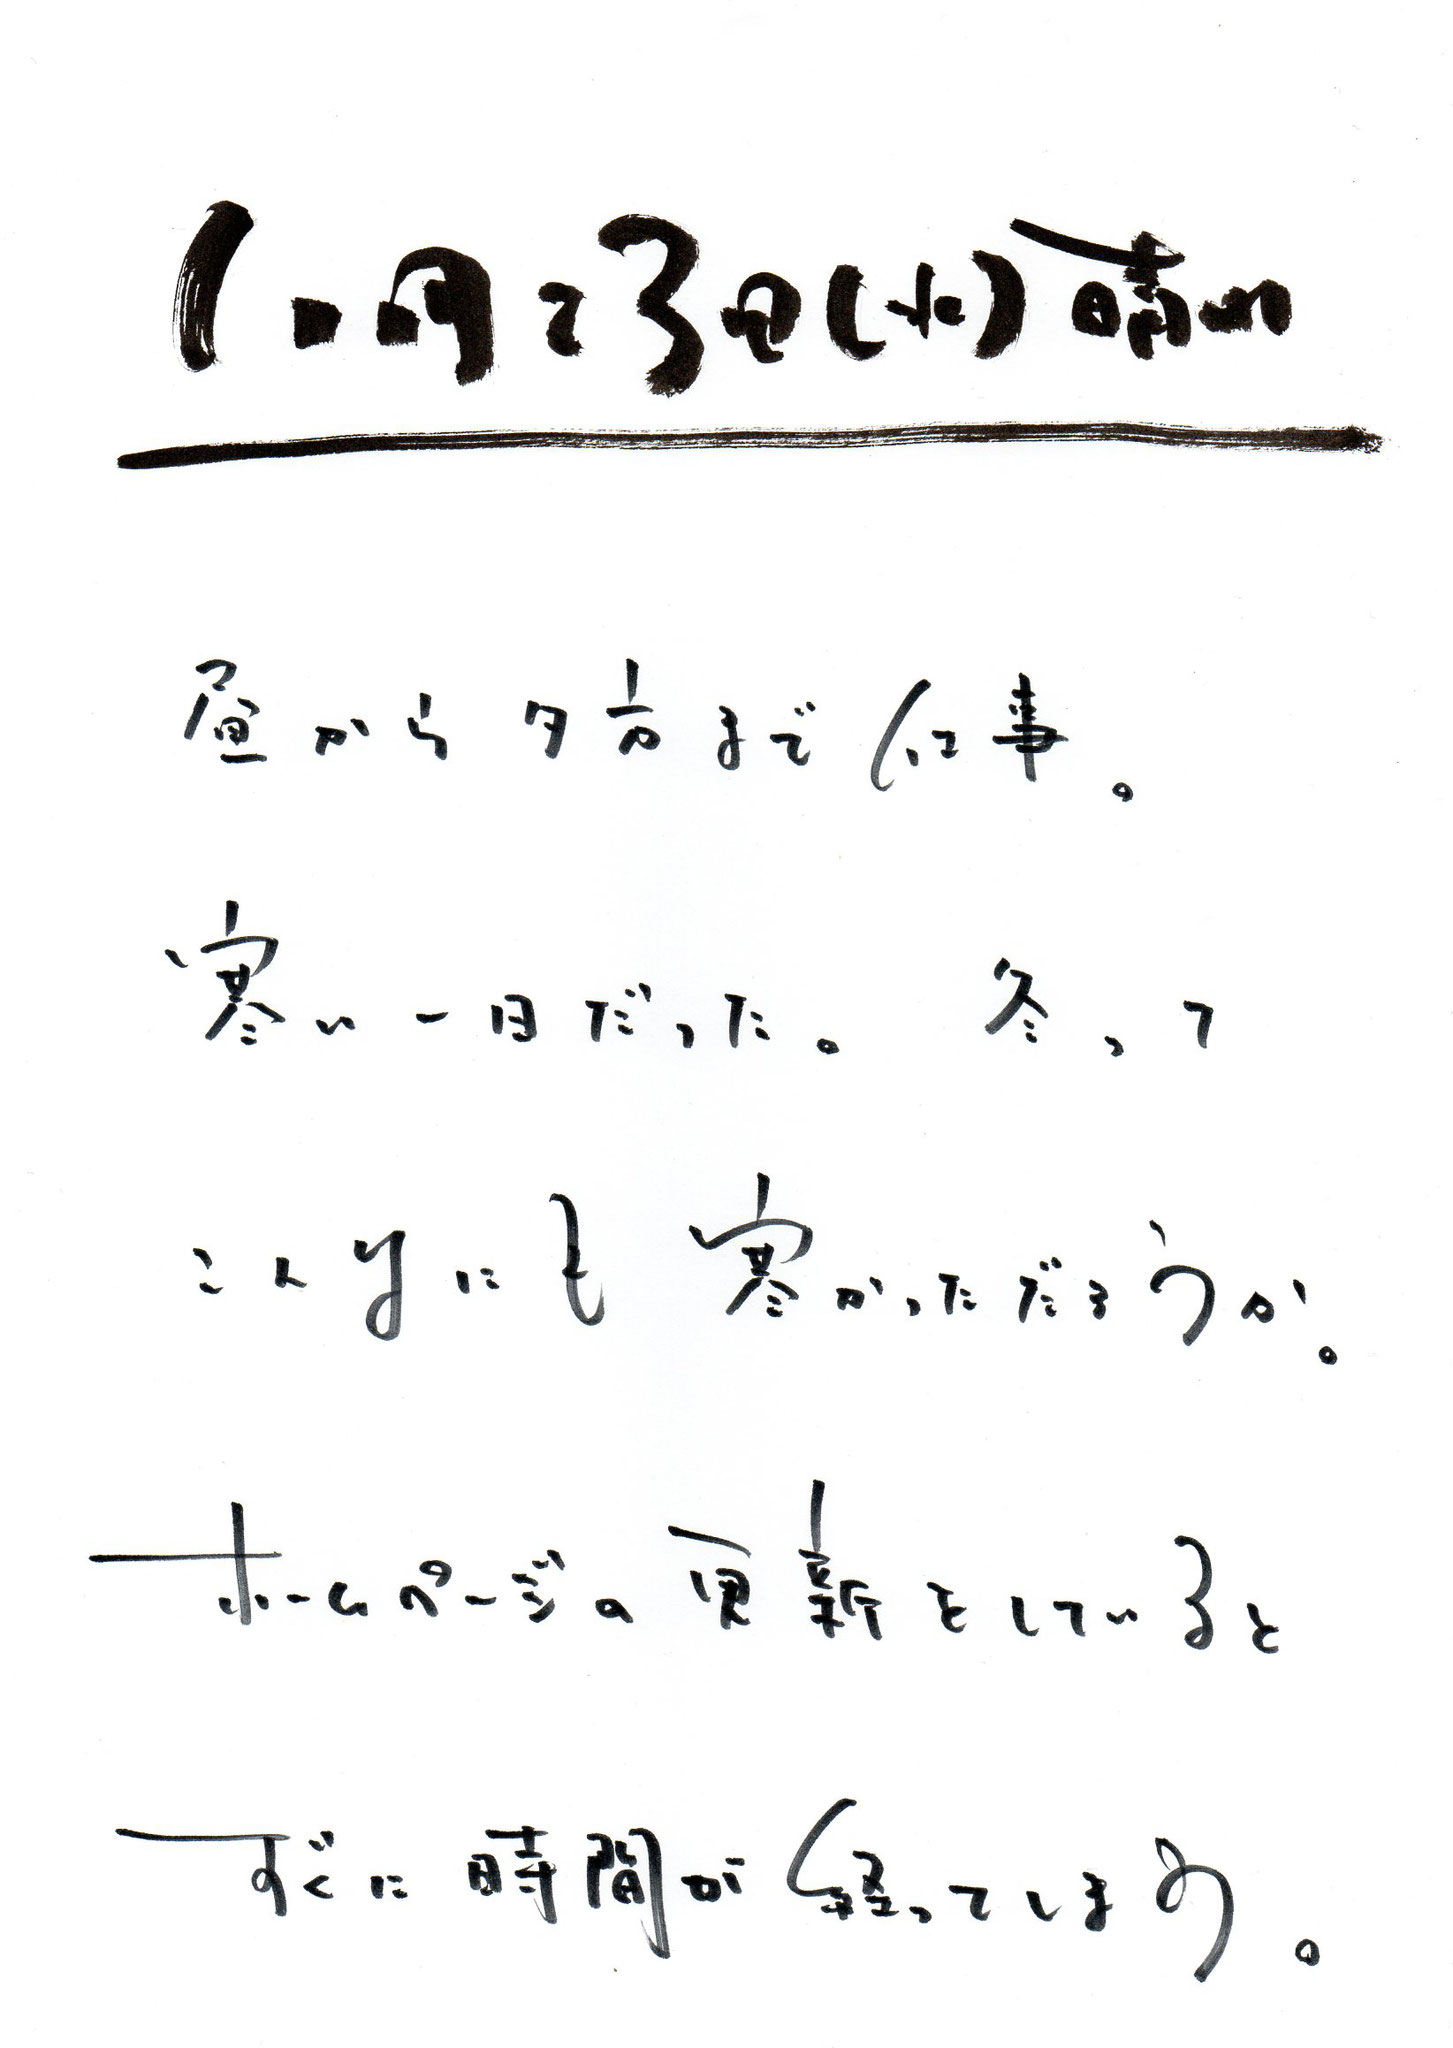 月23日(水)晴れ
昼から夕方まで仕事。
寒い一日だった。 冬って
こんなにも寒かっただろうか。
ホームページの更新をしていると
すぐに時間が経ってしまう。